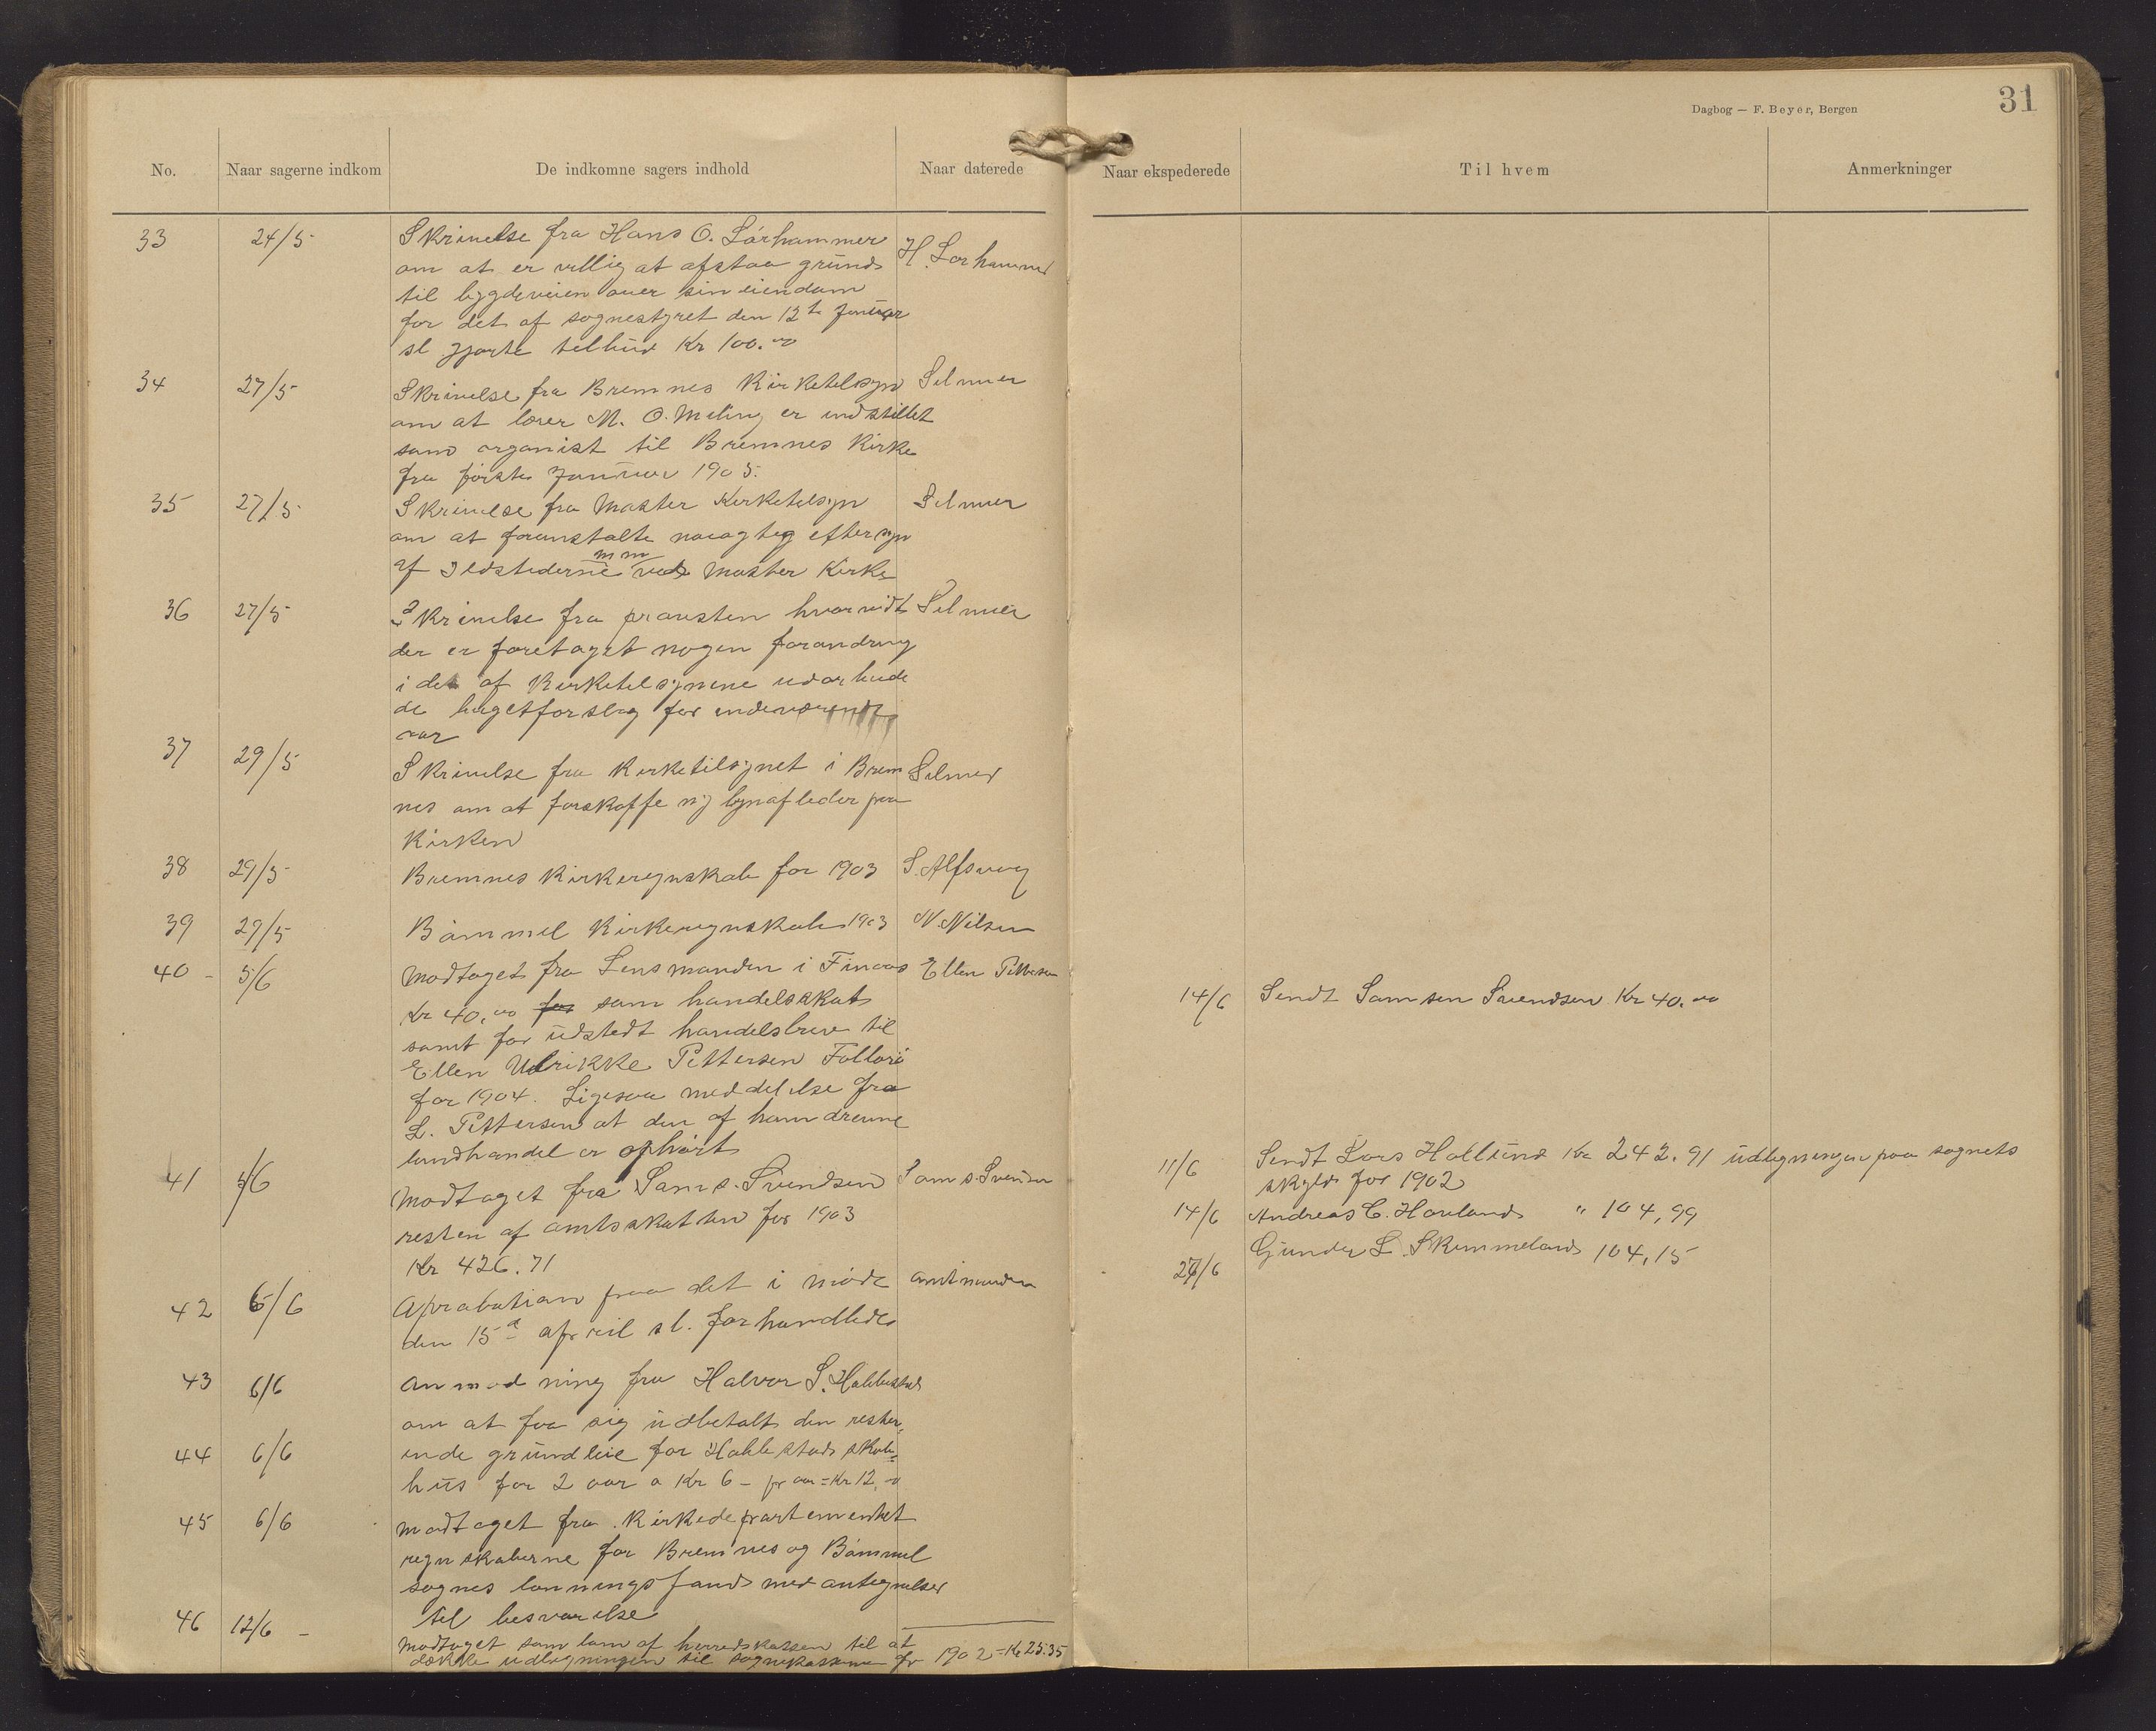 Dagbog — F. Beyer, Bergen
31
No. Naar sagerne indkom De indkomne sagers indhold Naar daterede
33 24/5 Skrivelse fra Hans O. Lørhammer H. Lorhammer
om at er villig at afstaa grund
til bygdeveien over sin eiendom
for det af sognestyret den 12te Januar
sl gjorte tilbud Kr 100.00
34 27/5 Skrivelse fra Bremnes Kirketilsyn Selmer
om at lærer M. O. Meling er indstillet
som organist til Bremnes Kirke
fra første Januar 1905.
35 27/5 Skrivelse fra Moster Kirketilsyn Selmer
om at foranstalte nøiagtig eftersyn
mm
af Ildstederne ved Moster Kirke
36 27/5 Skrivelse fra provsten hvorvidt Selmer
der er foretaget nogen forandring
i det af Kirketilsynene udarbeide
de bugetforslag for indeværende
aar
37 29/5 Skrivelse fra Kirketilsynet i Brem Selmer
nes om at forskaffe ny lynafleder paa
Kirken
38 29/5 Bremnes Kirkeregnskab for 1903 S. Alfsvaag
39 29/5 Bømmel Kirkeregnskab 1903 N. Nilsen
40 - 5/6 Modtaget fra Lensmanden i Finaas Ellen Pettersen
Kr 40.00 for som handelsskat
samt for udstedt handelsbrev til
Ellen Ulrikke Pettersen Follorø
for 1904. Ligesaa meddelelse fra
L. Pettersen at den af ham drevne
landhandel er ophørt
41 5/6 Modtaget fra Sams. Svendsen Sams. Svendsen
resten af amtsskatten for 1903
Kr 426.71
42 6/6 Aprobation paa det i møde amtmanden
den 15de april sl. forhandlede
43 6/6 Anmodning fra Halvor S. Hallestad
om at faa sig udbetalt den rester,
44 6/6 ende grundleie for Hallestad skole=
hus for 2 aar a Kr 6 - pr aar = Kr 12.00
45 6/6 modtaget fra Kirkedepartementet
regnskaberne for Bremnes og Bømmel
sognes lønningsfond med antegnelser
til besvarelse
46 12/6 - Modtaget som laan af herredskassen til at
dække udligningen til sognekassene for 1902 = Kr 25.35
Naar ekspederede Til hvem Anmerkninger
14/6 Sendt Samson Svendsen Kr 40.00
11/6 Sendt Lars Hollund Kr 242.91 udligningen paa sognets
skyld for 1902
14/6 Andreas C. Hovland " 104,99
27/6 Gunder L. Skimmeland 104,15